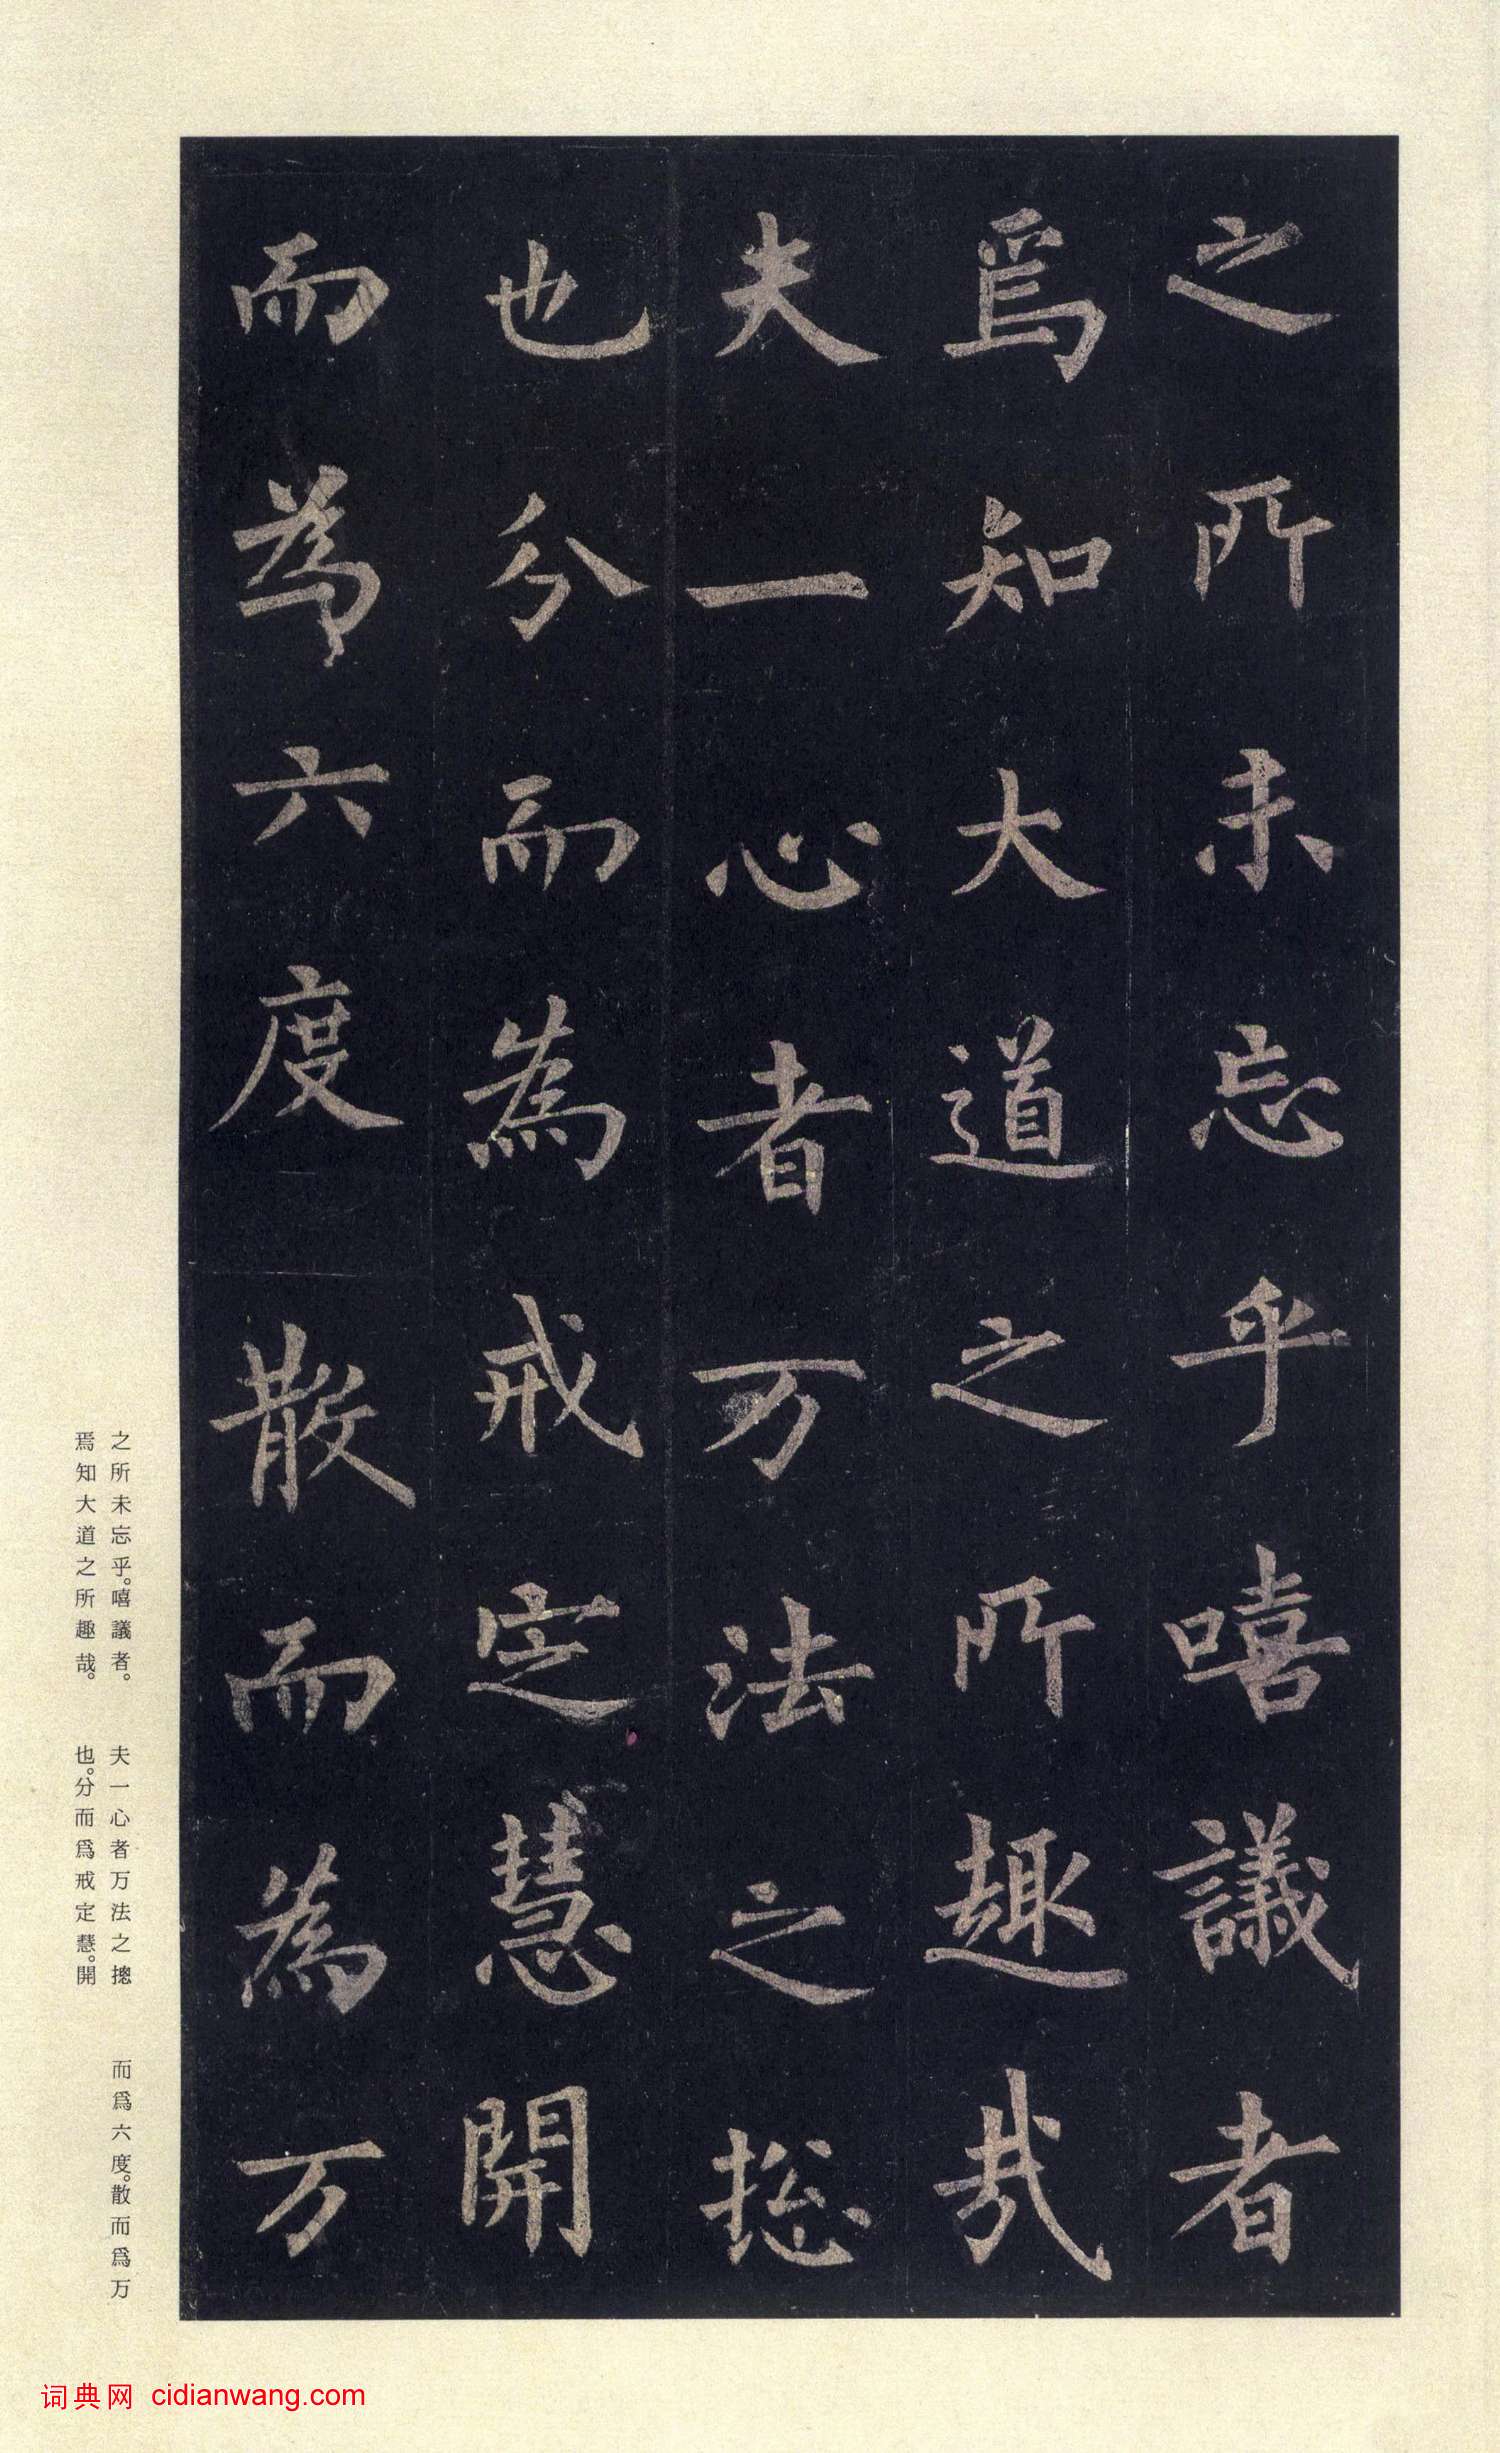 之所未忘乎嘻議者
焉知大道之所趣哉
夫一心者万法之揔
也分而為戒定慧開
而為六度散而為万
之所未忘乎。嘻議者。
焉知大道之所趣哉。
夫一心者万法之摠
也。分而爲戒定慧。開
而爲六度。散而爲万
词典网 cidianwang.com